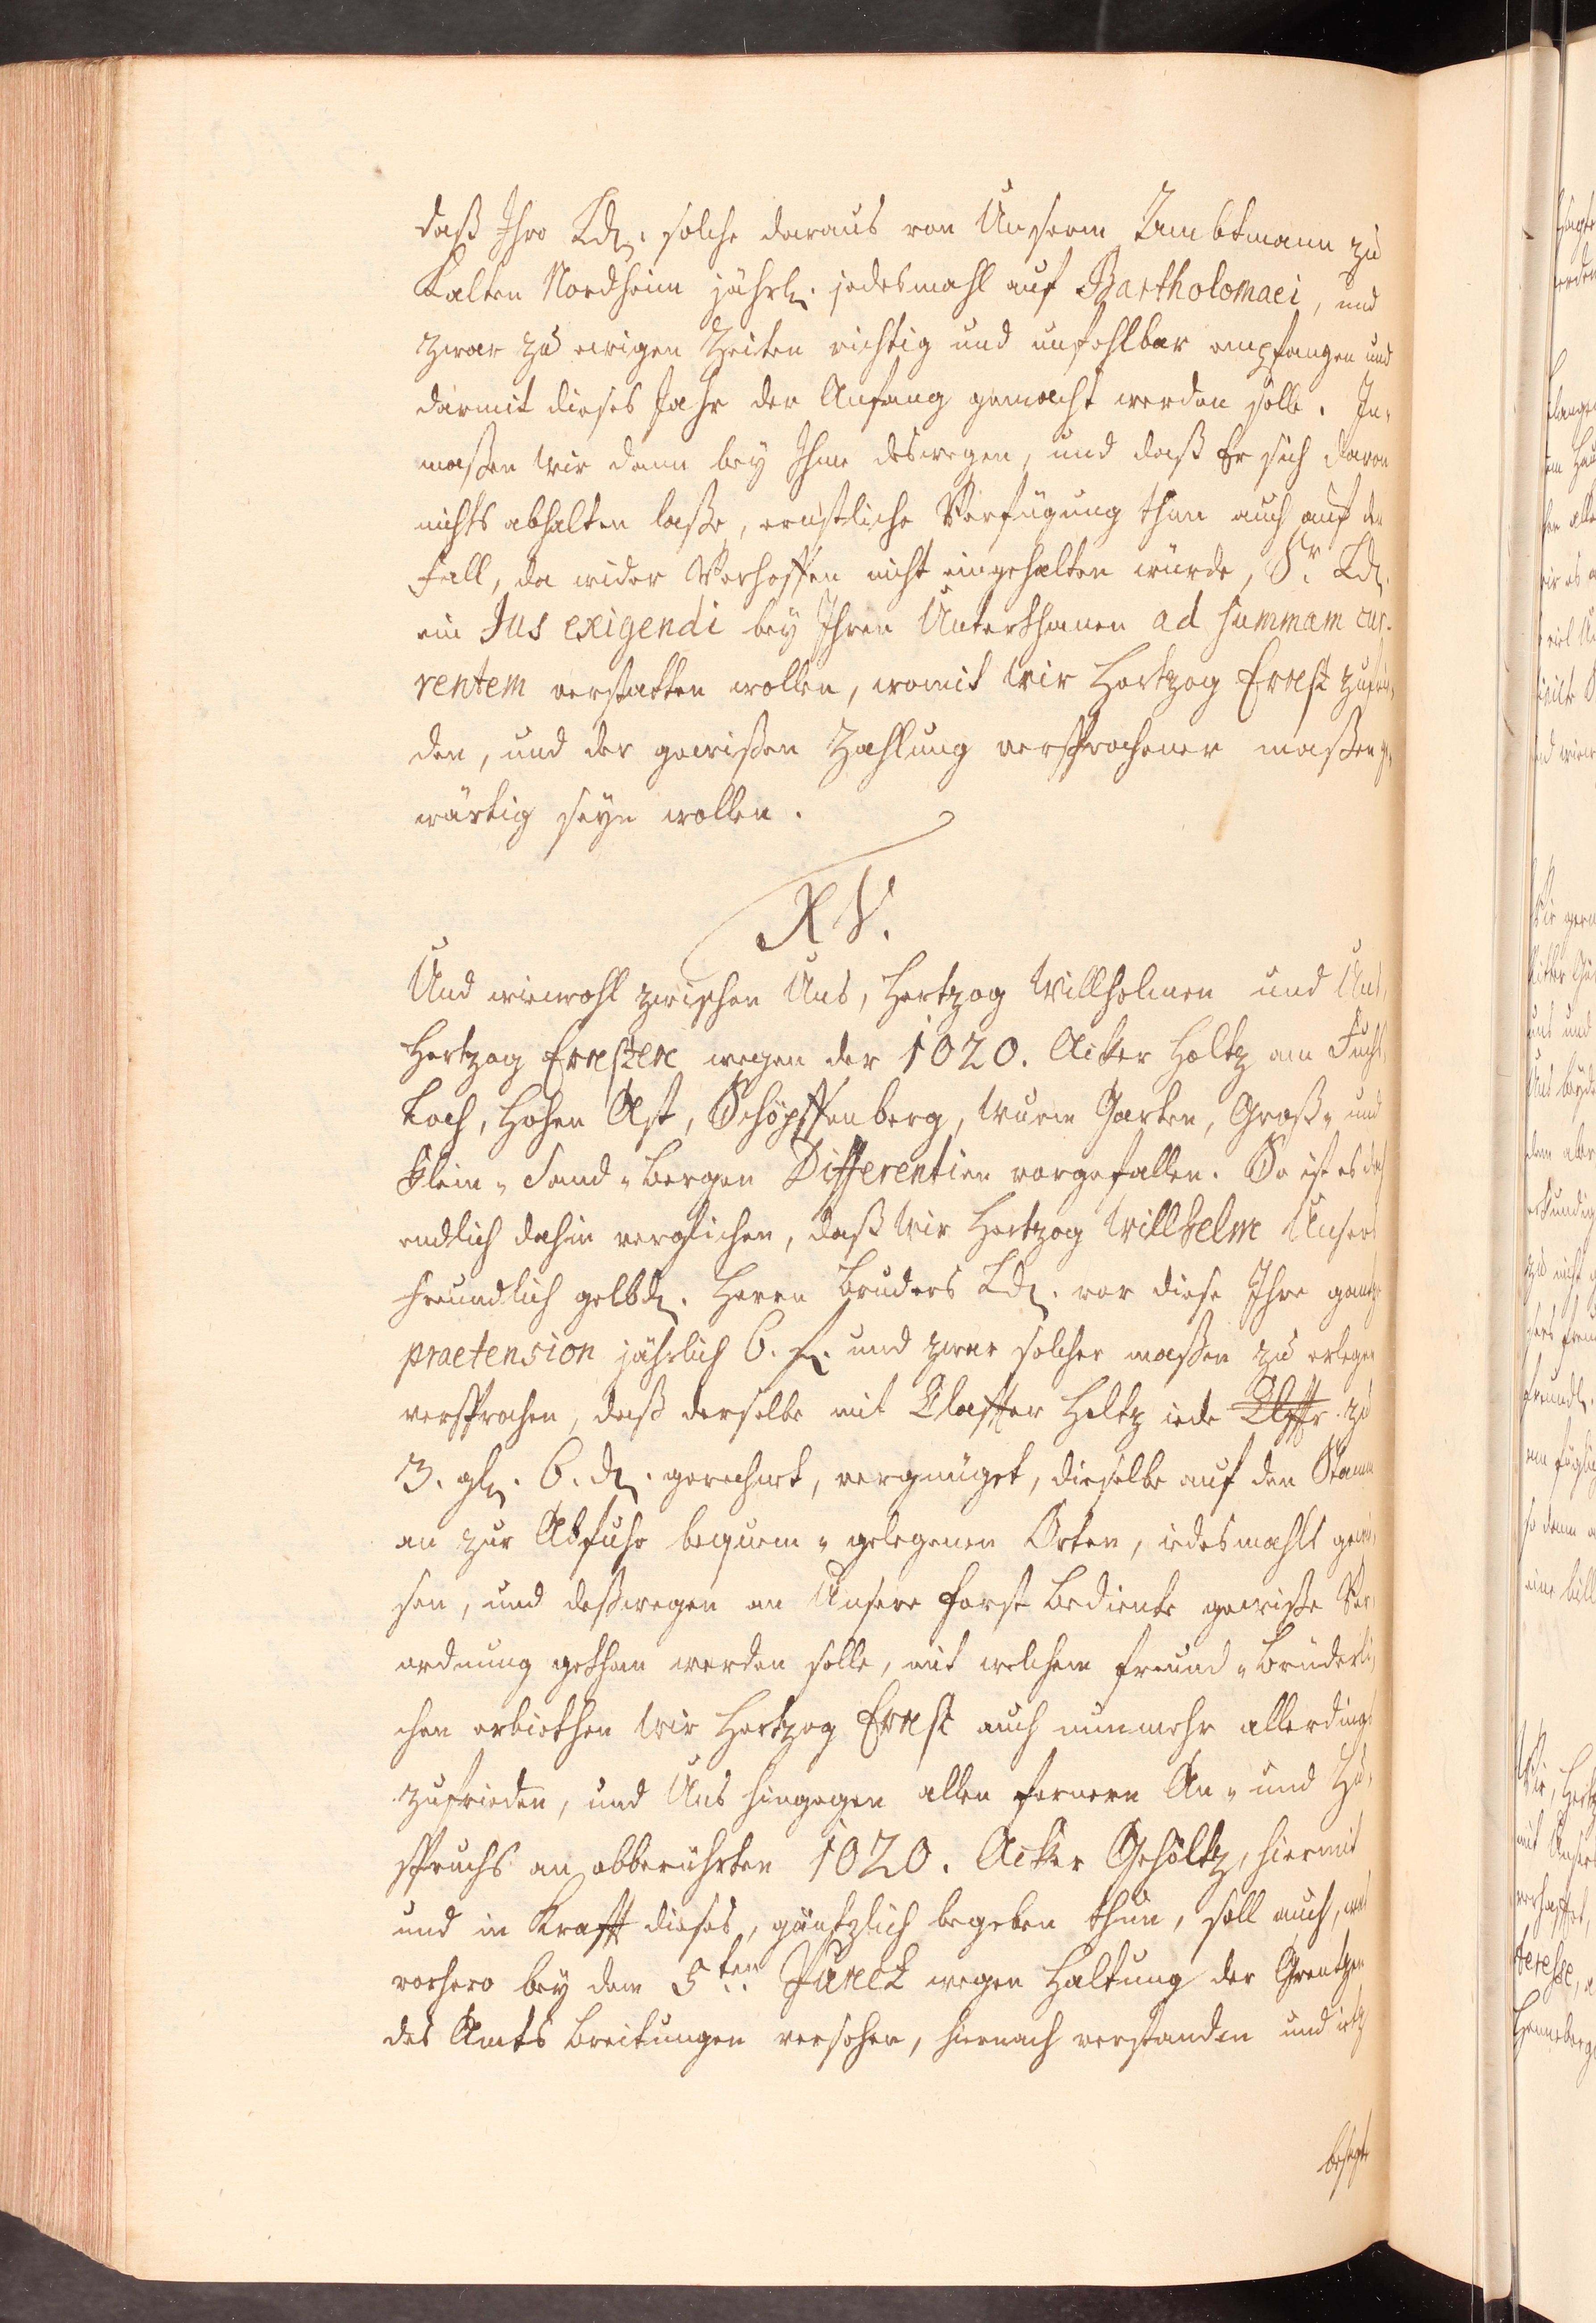 daß Ihro Ld. solche daraus von Unserm Ambtmann zu
Kalten Nordheim jährl. jedesmahl auf Bartholomaei, und
zwar zu ewigen Zeiten richtig und unfehlbar empfangen und
darmit dieses Jahr der Anfang gemacht werden solle. In-
maßen Wir dann bey Ihme deswegen, und daß Er sich davon
nichts abhalten laße, ernstliche Verfügung thun auch auf den
Fall, da wider Verhoffen nicht eingehalten würde, Sr. Ld.
ein Jus exigendi bey Ihren Unterthanen ad summam cur-
rentem verstatten wollen, womit Wir Hertzog Ernst zufrie-
den, und der gewißen Zahlung versprochener maßen ge-
wärtig seyn wollen.
XV.
Und wiewohl zwischen Uns, Hertzog Willhelmen und Uns,
Hertzog Ernsten wegen der 1020. Acker Holtz am Fuchs-
Loch, Hohen Ast, Schöpffenberg, Wurm Garten, Groß- und
Klein-Sand-Bergen Differentien vorgefallen. So ist es doch
endlich dahin verglichen, daß Wir Hertzog Willhelm Unsers
freundlich gelbd. Herrn Bruders Ld. vor diese Ihre gantze
praetension jährlich 6. f. und zwar solcher maßen zu erlegen
versprochen, daß derselbe mit Claffter Holtz iede Clffr. zu
3. gl. 6. d. gerechnet, vergnüget, dieselbe auf den Stamm
an zur Abfuhr bequem-gelegenen Orten, iedesmahls gewie-
sen, und deßwegen an Unsere Forst Bediente gewiße Ver-
ordnung gethan werden solle, mit welchem freund-Brüderli-
chen erbiethen Wir Hertzog Ernst auch nunmehr allerdings
zufrieden, und Uns hingegen allen fernern An- und Zu-
spruchs an obberührten 1020. Acker Gehöltz, hiermit
und in Krafft dieses, gäntzlich begeben thun, soll auch, was
vorhero bey dem 5ten Punct wegen Haltung der Grentzen
des Amts Breitungen versehen, hiernach verstanden und ietz
besagte